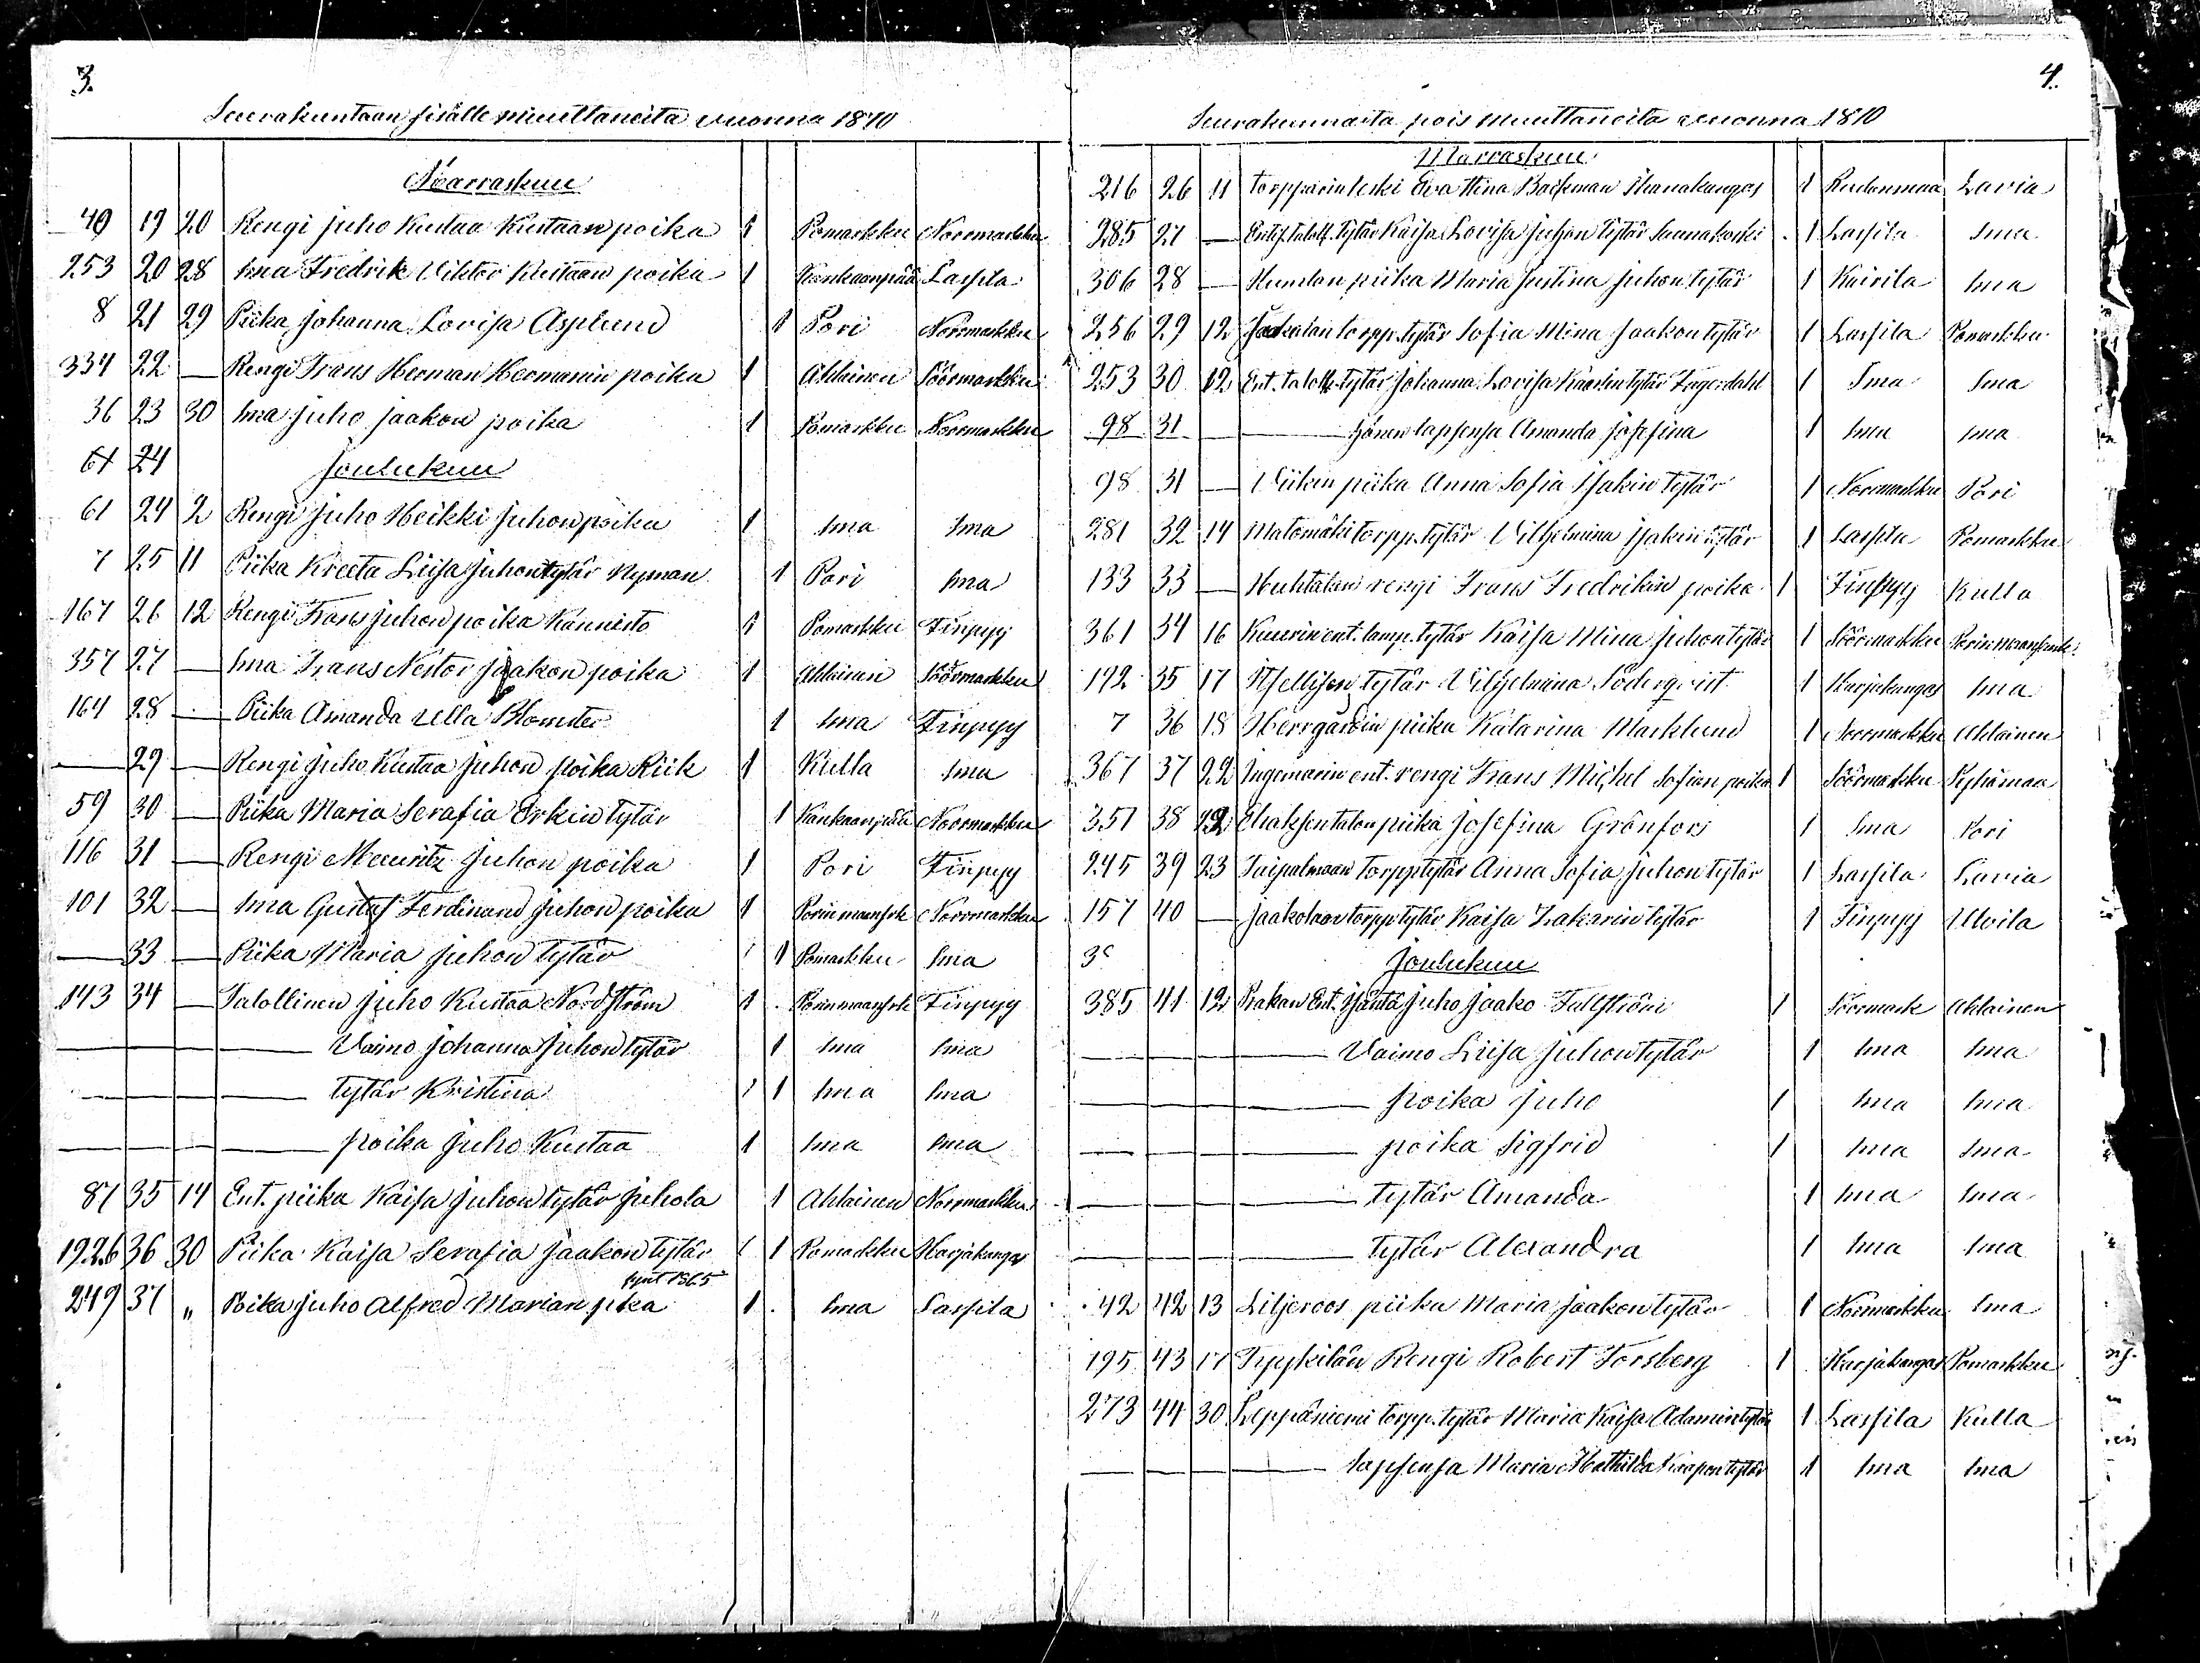 3.
Seurakuntaan sisälle muuttaneita vuonna 1870
Marraskuu
49 19 20 Rengi Juho Kustaa Kustaan poika 1 Pomarkku Normarkku
253 20 28 sma Fredrik Viktor Kustaan poika 1 Kankaanpää Lassila
8 21 29 Piika Johanna Lovisa Asplund 1 Pori Normarkku
334 22 — Rengi Frans Herman Hermanin poika 1 Ahlainen Söörmarkku
36 23 30 sma Juho Jaakon poika 1 Pomarkku Normarkku
61 24 Joulukuu
61 24 2 Rengi Juho Heikki Juhon poika 1 sma sma
7 25 11 Piika Kreeta Liisa Juhontytär Nyman 1 Pori sma
167 26 12 Rengi Frans Juhon poika Kännistö 1 Pomarkku Finpyy
357 27 — sma Frans Nestor Jaakon poika 1 Ahlainen Söörmarkku
164 28 — Piika Amanda Ulla Blomster 1 sma Finpyy
— 29 — Rengi Juho Kustaa Juhon poika Riik 1 Kulla sma
59 30 — Piika Maria Serafia Erkin tytär 1 Kankaanpää Normarkku
116 31 — Rengi Mauritz Juhon poika 1 Pori Finpyy
101 32 — sma Gustaf Ferdinand Juhon poika 1 Porin maansrk Normarkku
— 33 — Piika Maria Juhon tytär 1 Pomarkku sma
143 34 — Talollinen Juho Kustaa Nordström 1 Porinmaansrk Finpyy
— Vaimo Johanna Juhontytär 1 sma sma
— tytär Kristina 1 sma sma
— poika Juho Kustaa 1 sma sma
87 35 14 Ent. piika Kaisa Juhon tytär Juhola 1 Ahlainen Normarkku
192.26 36 30 Piika Kaisa Serafia Jaakon tytär 1 Pomarkku Harjakangas
synt 1865
249 37 „ Poika Juho Alfred Marian pka 1 sma Lassila
4.
Seurakunnasta pois muuttaneita vuonna 1870
Marraskuu
216 26 11 Torpparin leski Eva Stina Backman 1 Rudanmaa Lavia
285 27 — tytär Kaisa Lovisa Juhon tytär 1 Lassila sma
306 28 — piika Maria Justina Juhon tytär 1 Kairila sma
256 29 12 torpp. tytär Sofia Mina Jaakon tytär 1 Lassila Pomarkku
253 30 12 Ent. taloll. tytär Johanna Lovisa Kaarlin tytär 1 sma sma
98 31 — hänen lapsensa Amanda Josefina 1 sma sma
98 31 — Viikin piika Anna Sofia Isakin tytär 1 Normarkku Pori
281 32 14 Matomäki torpp. tytär Vilhelmina Isakin tytär 1 Lassila Pomarkku
133 33 — Huhtalan rengi Frans Fredrikin poika 1 Finpyy Kulla
361 34 16 Kuurin ent. lamp. tytär Kaisa Mina Juhon tytär 1 Söörmarkku Porin maansrk.
192 35 17 Itsellisen tytär Vilhelmina Söderqvist 1 Harjakangas sma
7 36 18 Herrgårdin piika Katarina Marklund 1 Normarkku Ahlainen
367 37 22 Ingemarin ent. rengi Frans Mikhel Sofian poika 1 Söörmarkku Pyhämaa
351 38 22 talon piika Josefina Grönfors 1 sma Pori
245 39 23 Taipalmaan torpp tytär Anna Sofia Juhon tytär 1 Lassila Lavia
157 40 — Jaakolaan torpp tytär Kaisa Sakarin tytär 1 Finpyy Ulvila
3 Joulukuu
385 41 12 Ent. Juho Jaako Fallström 1 Söörmark Ahlainen
— Vaimo Liisa Juhontytär 1 sma sma
— poika Juho 1 sma sma
— poika Sigfrid 1 sma sma
— tytär Amanda 1 sma sma
— tytär Alexandra 1 sma sma
42 42 13 Liljeroos piika Maria Jaakontytär 1 Normarkku sma
195 43 17 Tyykilän Rengi Robert Forsberg 1 Harjakangas Pomarkku
273 44 30 Leppäniemi torpp. tytär Maria Kaisa Adamintytär 1 Lassila Kulla
— lapsensa Maria Mathilda 1 sma sma